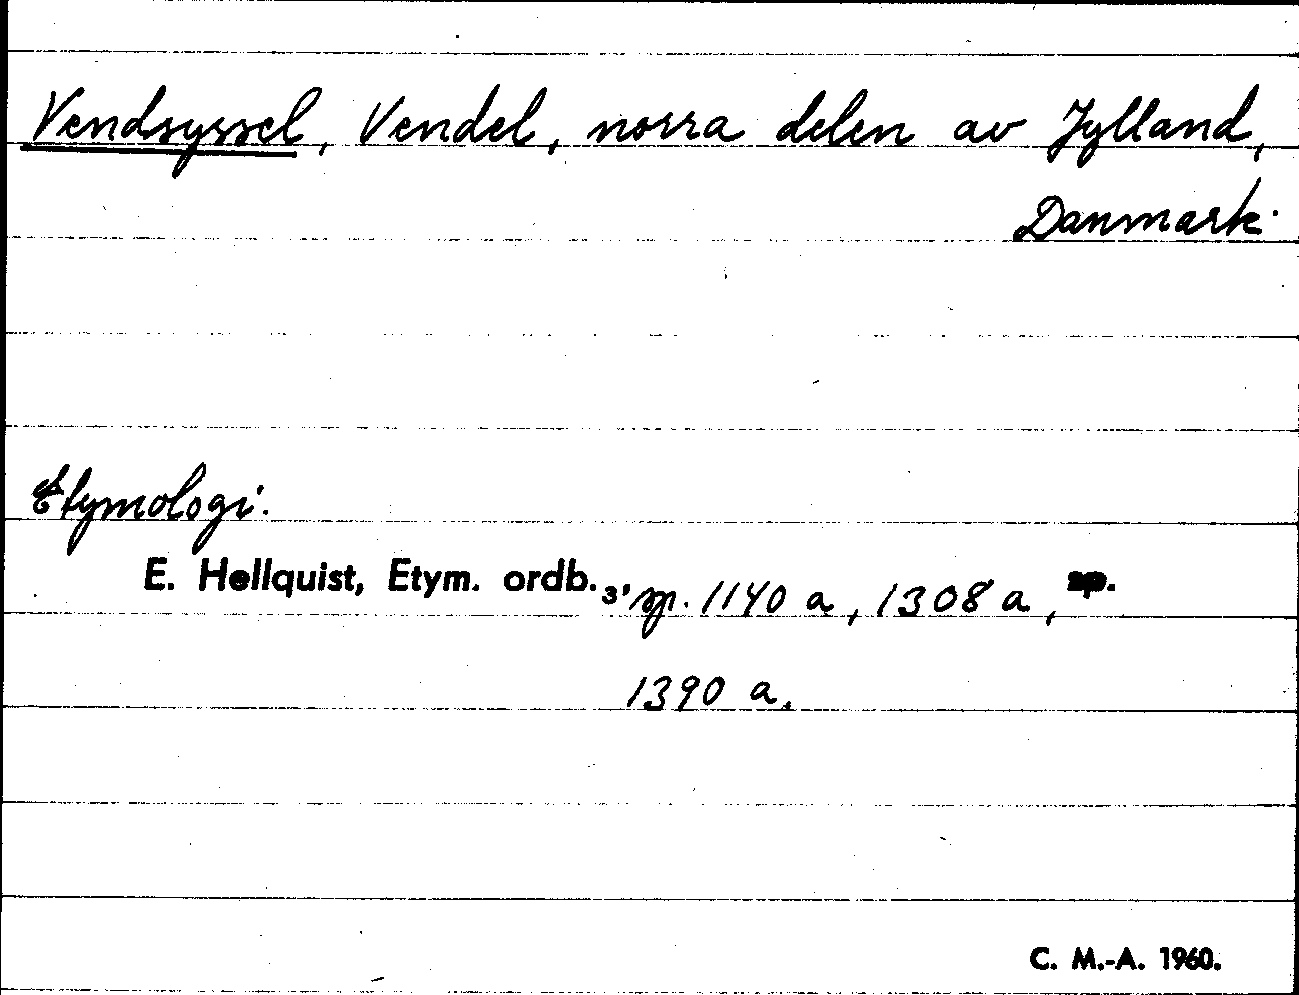 Vendsyssel, Vendel, norra delen av Jylland,
Danmark.
Etymologi.
E. Hellquist, Etym. ordb.₃, sp. 1140 a, 1308 a, sp.
1390 a.
C. M.-A. 1960.